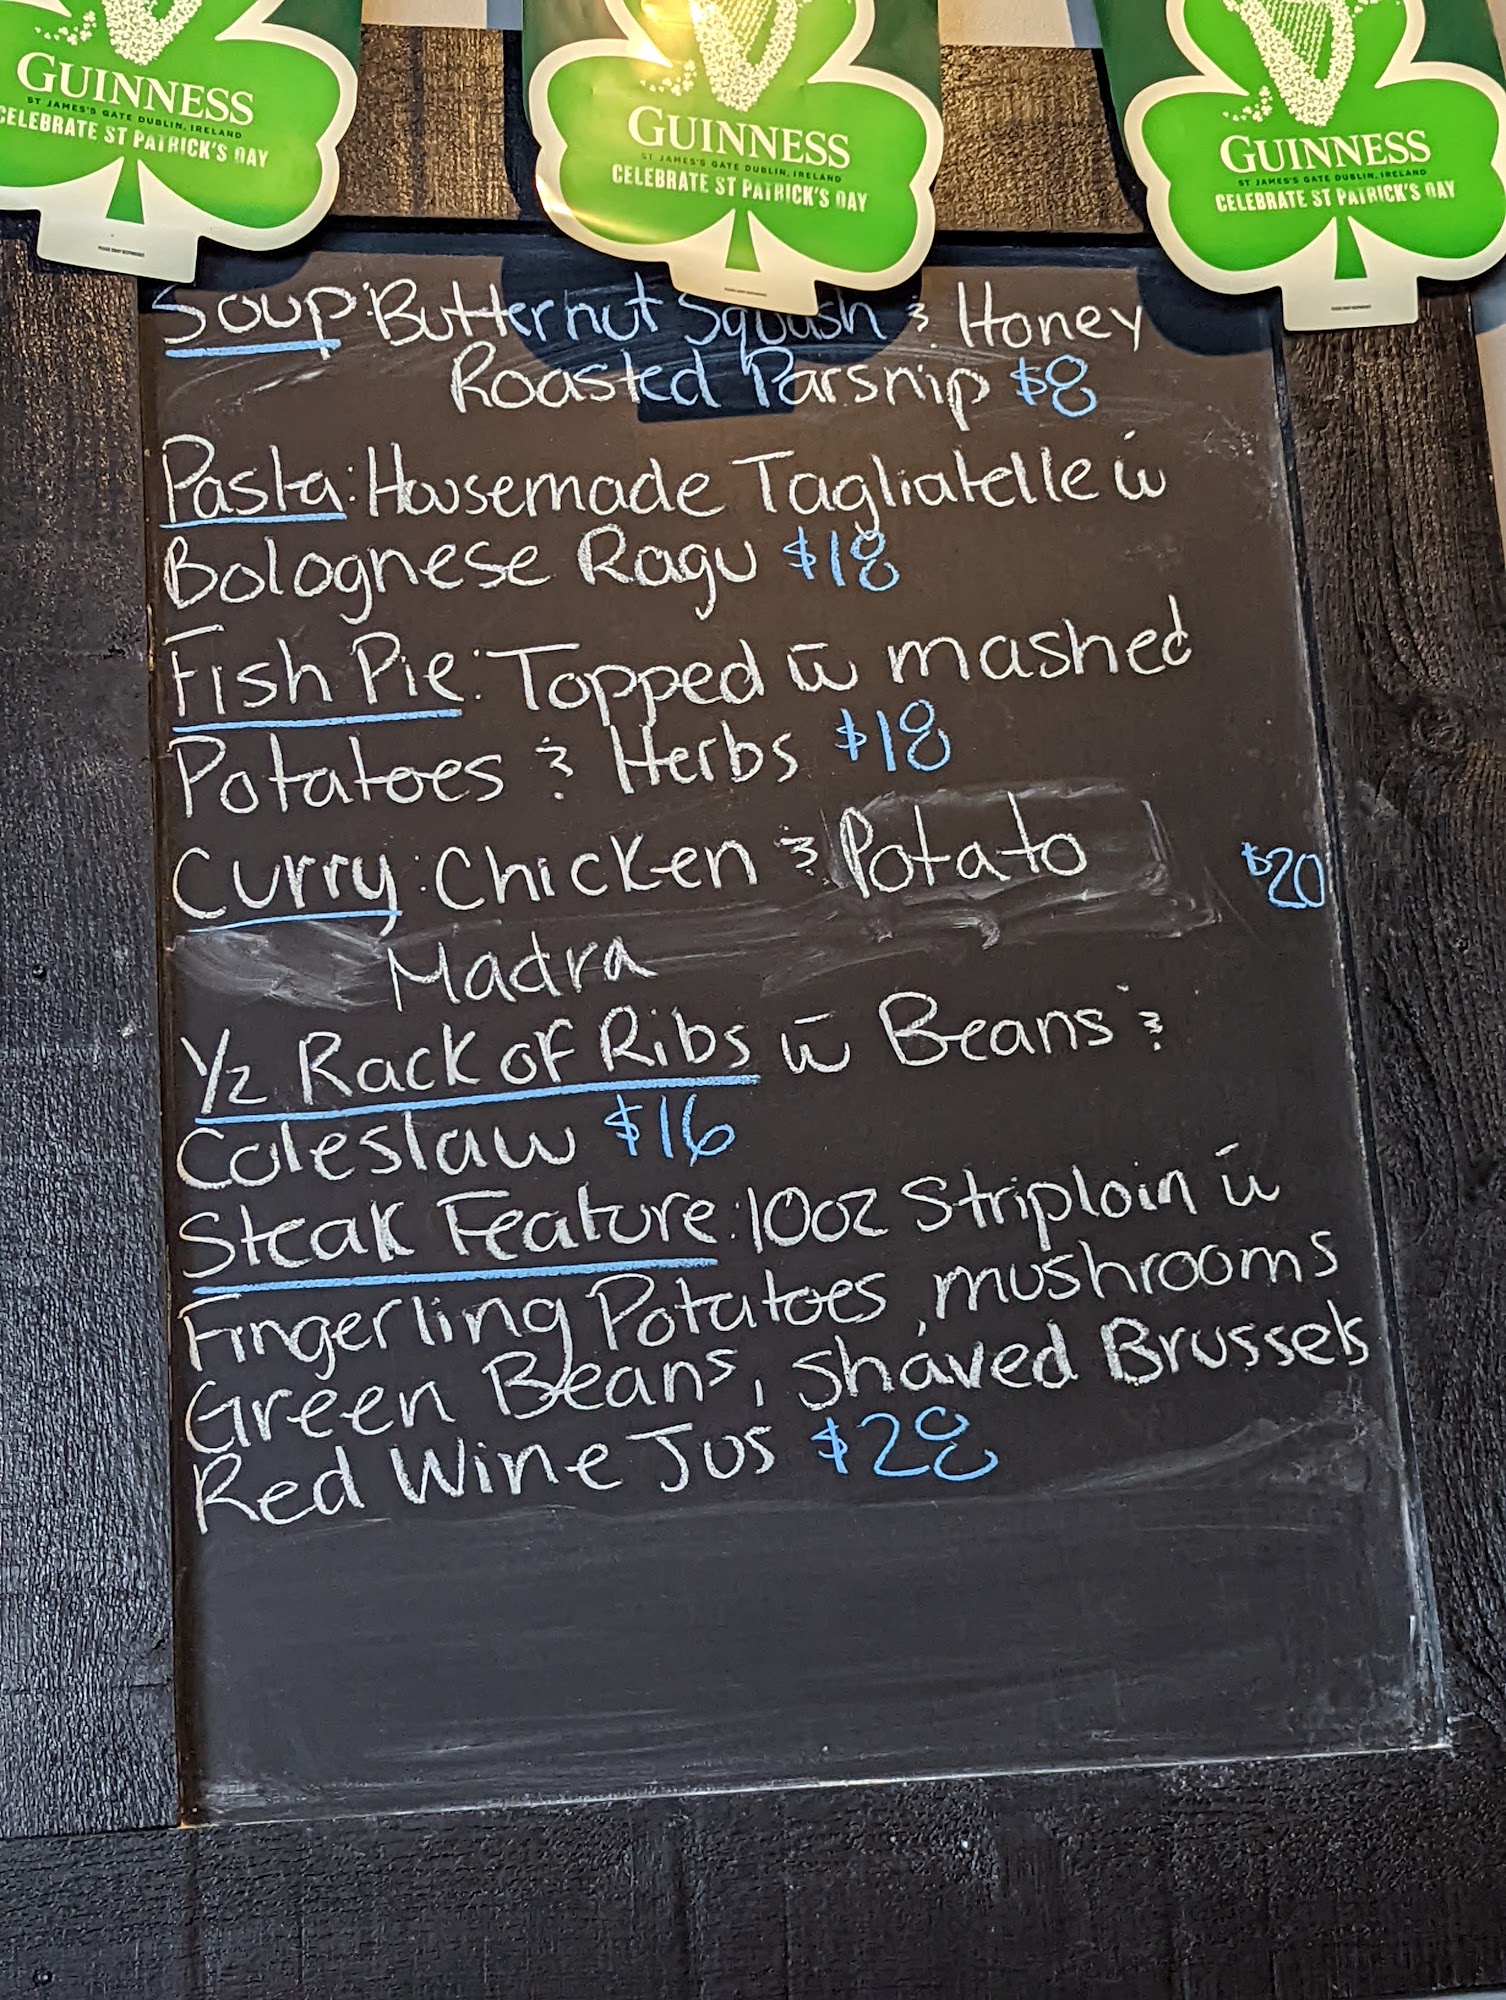 GUINNESS
ST JAMES'S GATE DUBLIN, IRELAND
CELEBRATE ST PATRICK'S DAY
GUINNESS
ST JAMES'S GATE DUBLIN, IRELAND
CELEBRATE ST PATRICK'S DAY
GUINNESS
ST JAMES'S GATE DUBLIN, IRELAND
CELEBRATE ST PATRICK'S DAY
Soup: Butternut Squash & Honey
Roasted Parsnip $8
Pasta: Housemade Tagliatelle w
Bolognese Ragu $18
Fish Pie: Topped w mashed
Potatoes & Herbs $18
Curry: Chicken & Potato $20
Madra
1/2 Rack of Ribs w Beans &
Coleslaw $16
Steak Feature: 10oz Striploin w
Fingerling Potatoes, mushrooms
Green Beans, shaved Brussels
Red Wine Jus $28